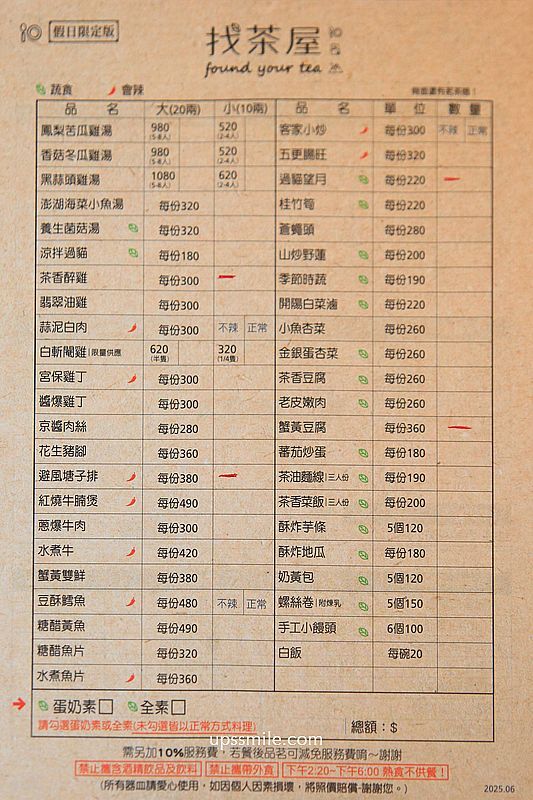 假日限定版
找茶屋
found your tea
蔬食 會辣 背面還有茗茶區！
品 名 大(20兩) 小(10兩)
鳳梨苦瓜雞湯 980 (5-8人) 520 (2-4人)
香菇冬瓜雞湯 980 (5-8人) 520 (2-4人)
黑蒜頭雞湯 1080 (5-8人) 620 (2-4人)
澎湖海菜小魚湯 每份320
養生菌菇湯 每份320
涼拌過貓 每份180
茶香醉雞 每份300
翡翠油雞 每份300
蒜泥白肉 每份300 不辣 正常
白斬閹雞|限量供應 620 (半隻) 320 (1/4隻)
宮保雞丁 每份300
醬爆雞丁 每份300
京醬肉絲 每份280
花生豬腳 每份360
避風塘子排 每份380
紅燒牛腩煲 每份490
蔥爆牛肉 每份300
水煮牛 每份420
蟹黃雙鮮 每份380
豆酥鱈魚 每份480 不辣 正常
糖醋黃魚 每份490
糖醋魚片 每份320
水煮魚片 每份360
品 名 單 位 數 量
客家小炒 每份300 不辣 正常
五更腸旺 每份320
過貓望月 每份220
桂竹筍 每份220
蒼蠅頭 每份280
山炒野蓮 每份200
季節時蔬 每份190
開陽白菜滷 每份220
小魚杏菜 每份260
金銀蛋杏菜 每份260
茶香豆腐 每份260
老皮嫩肉 每份260
蟹黃豆腐 每份360
蕃茄炒蛋 每份180
茶油麵線|三人份 每份190
茶香菜飯|三人份 每份200
酥炸芋條 5個120
酥炸地瓜 每份180
奶黃包 5個120
螺絲卷|附煉乳 5個150
手工小饅頭 6個100
白飯 每碗20
蛋奶素 全素
請勾選蛋奶素或全素(未勾選皆以正常方式料理)
總額：$
upssmile.com
需另加10%服務費，若餐後品茗可減免服務費唷～謝謝
禁止攜含酒精飲品及飲料 禁止攜帶外食 下午2:20~下午6:00 熱食不供餐！
(所有器皿請愛心使用，如因個人因素損壞，將照價賠償-謝謝您。)
2025.06